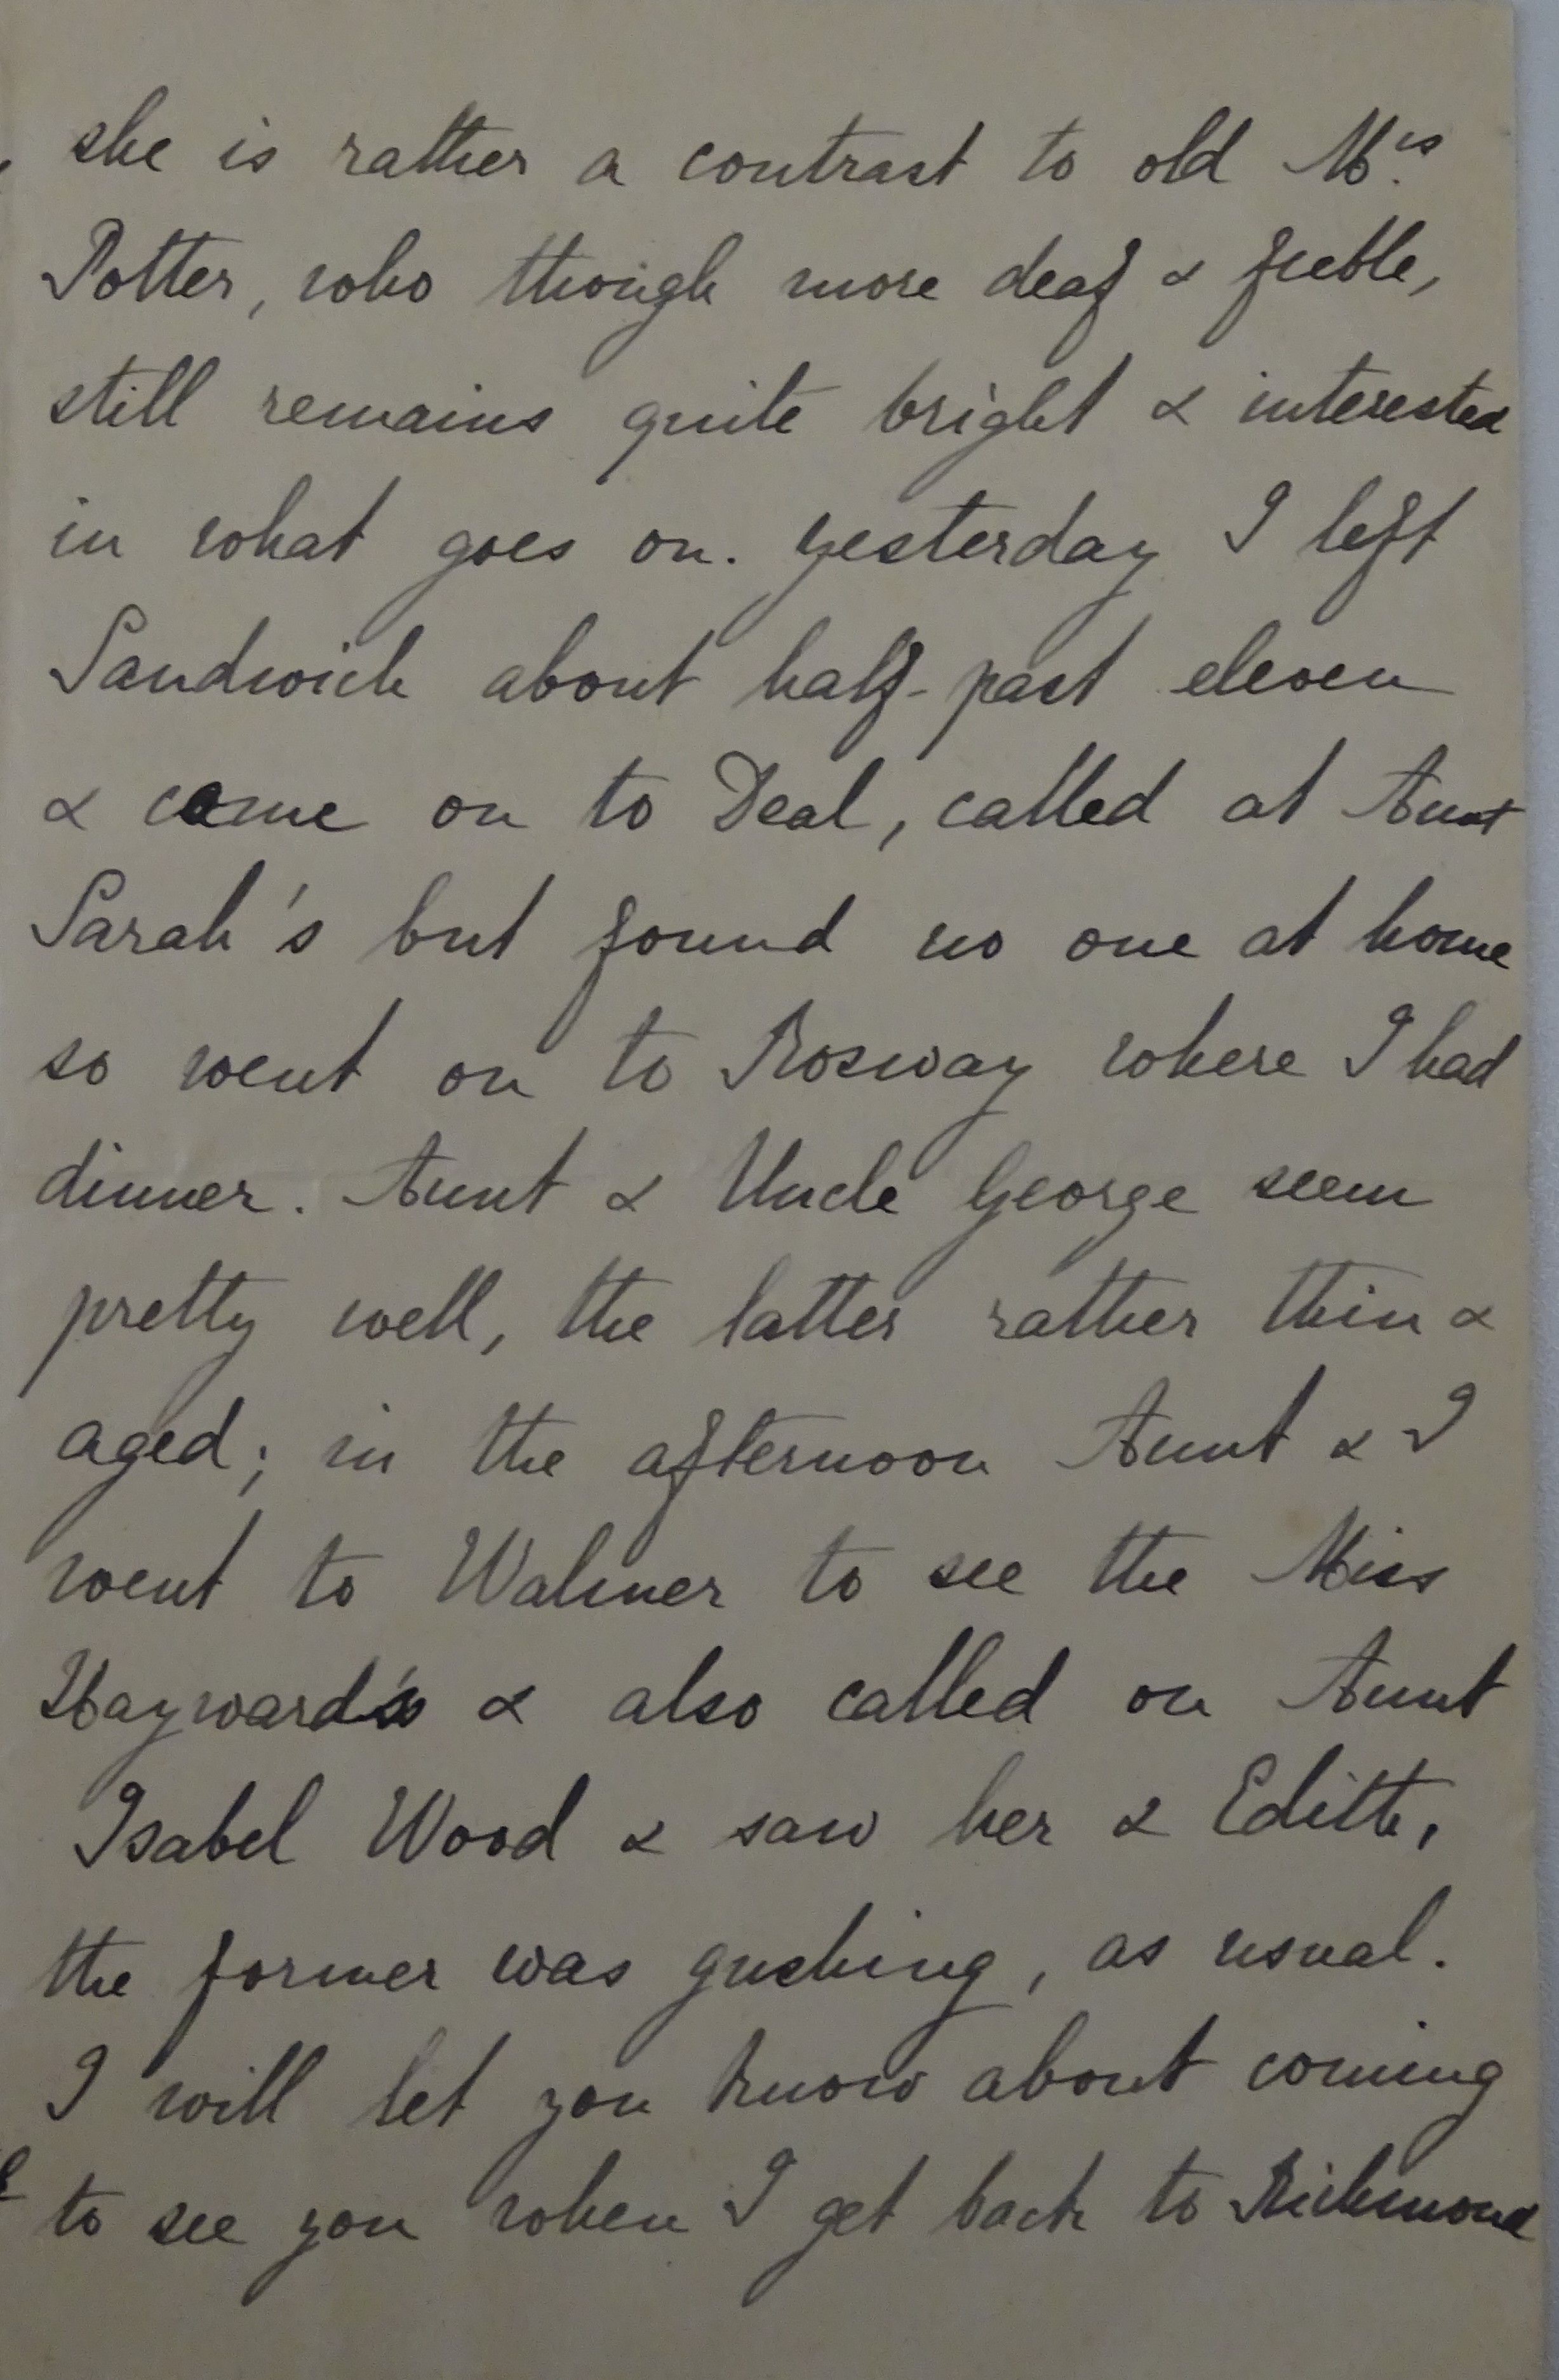 she is rather a contrast to old Mrs.
Potter, who though more deaf & feeble,
still remains quite bright & interested
in what goes on. yesterday I left
Sandwich about half-past eleven
& came on to Deal, called at Aunt
Sarah's but found no one at home
so went on to Rosway where I had
dinner. Aunt & Uncle George seem
pretty well, the latter rather thin &
aged; in the afternoon Aunt & I
went to Walmer to see the Miss
Hayward's & also called on Aunt
Isabel Wood & saw her & Edith,
the former was gushing, as usual.
I will let you know about coming
to see you when I get back to Richmond